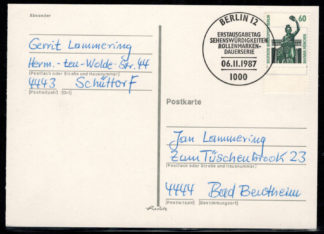 Absender
Gerrit Lammering
Herm.-ten-Wolde-Str. 44
(Postfach oder Straße und Hausnummer)
4443 Schüttorf
(Postleitzahl) (Ort)
BERLIN 12
ERSTAUSGABETAG
SEHENSWÜRDIGKEITEN
ROLLENMARKEN-
DAUERSERIE
06.11.1987
1000
60
Postkarte
Jan Lammering
Zum Tüschenbrook 23
(Postfach oder Straße und Hausnummer)
4444 Bad Bentheim
(Postleitzahl) (Bestimmungsort)